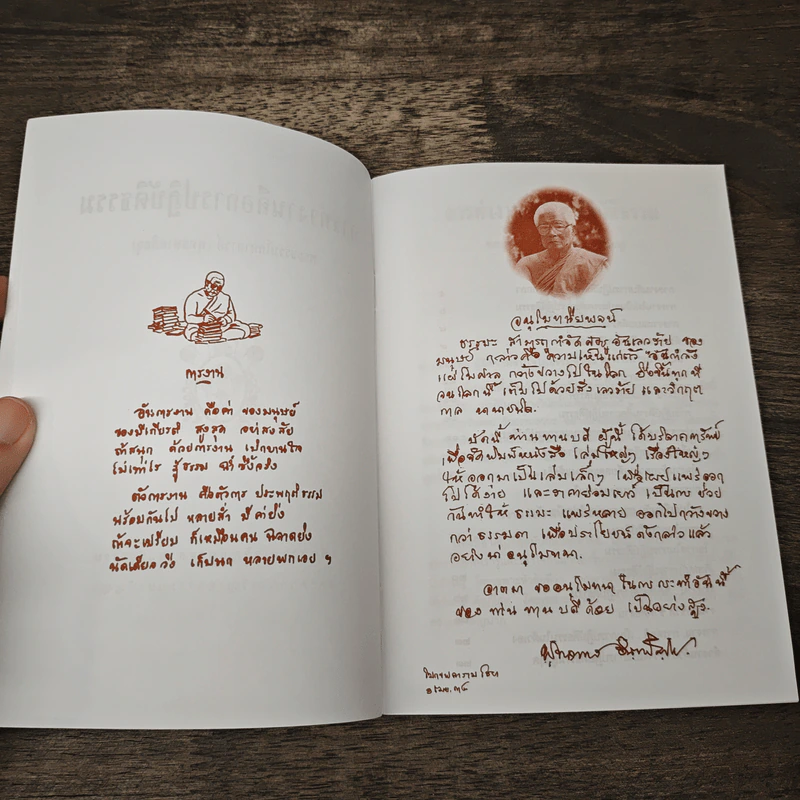 การงาน
อันการงาน คือค่า ของมนุษย์
ของมีเกียรติ สูงสุด อย่าสงสัย
ถ้าสนุก ด้วยการงาน เบิกบานใจ
ไม่เท่าไร รู้ธรรม ฉ่ำซึ้งจริง
ตัวการงาน คือตัวการ ประพฤติธรรม
พร้อมกันไป หลายส่ำ มีค่ายิ่ง
ถ้าจะเปรียบ ก็เหมือนคน ฉลาดยิง
นัดเดียววิ่ง เก็บนก หลายพกเอย ฯ
อนุโมทนียพจน์
ธรรมะ สามารถกำจัด ความเลวร้าย ของ
มนุษย์ กล่าวคือ ความเห็นแก่ตัว อันกำลัง
แผ่ไพศาล กว้างขวางไปในโลก
โลกนี้ เต็มไปด้วยสิ่งเลวร้าย และวิกฤต
กาล นานาชนิด.
บัดนี้ ท่านทานบดี ผู้นี้ ได้บริจาคทรัพย์
เพื่อจัดพิมพ์หนังสือ เล่มใหญ่ๆ เรื่องใหญ่ๆ
ให้ออกมาเป็นเล่มเล็กๆ เพื่อเผยแพร่ออก
ไปได้ง่าย และราคาย่อมเยาว์ เป็นการช่วย
กันทำให้ ธรรมะ แพร่หลาย ออกไปกว้างขวาง
กว่าธรรมดา เพื่อประโยชน์ ดังกล่าวแล้ว
อย่างน่าอนุโมทนา.
อาตมา ขออนุโมทนา ในการกระทำอันนี้
ของ ท่านทานบดีด้วย เป็นอย่างยิ่ง.
พุทธทาส อินทปัญโญ.
โมกขพลาราม ไชยา
๑ เม.ย. ๓๔